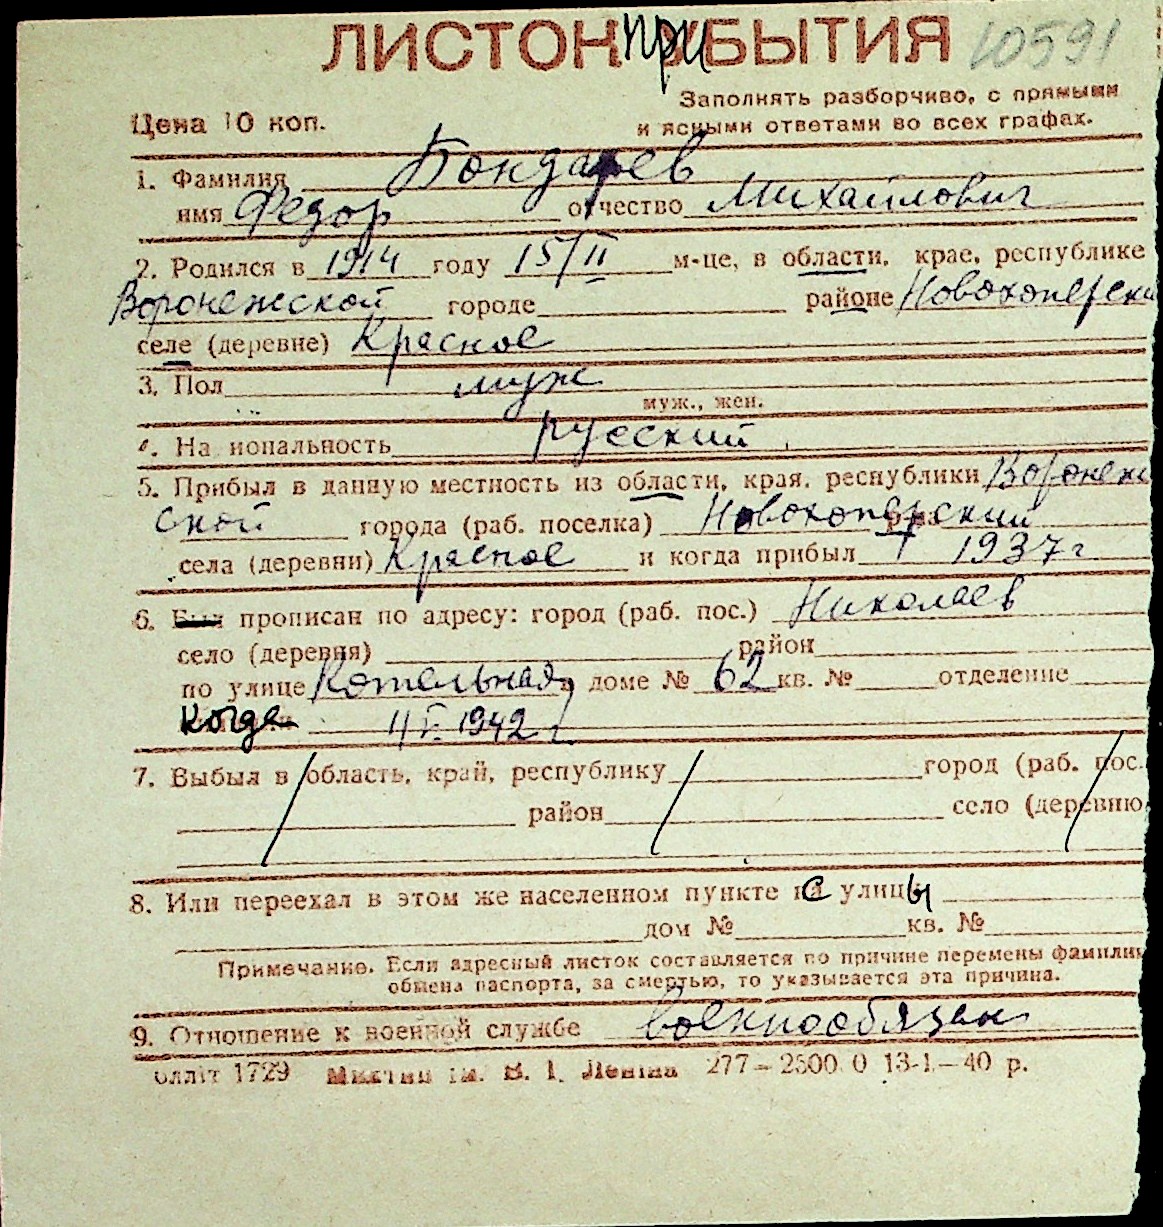 ЛИСТОК при БЫТИЯ 10591
Заполнять разборчиво, с прямыми
Цена 10 коп. и ясными ответами во всех графах.
1. Фамилия Бондарев
имя Федор отчество Михайлович
2. Родился в 1914 году 15/II м-це, в области, крае, республике
Воронежской городе районе Новохоперски
селе (деревне) Красное
3. Пол муж
муж., жен.
На иональность русский
5. Прибыл в данную местность из области, края, республики Воронеж
ской города (раб. поселка) Новохоперский
села (деревни) Красное и когда прибыл 1937 г
6. прописан по адресу: город (раб. пос.) Николаев
село (деревня) район
по улице Котельная, доме № 62 кв. № отделение
Когда 1942 г.
7. Выбыл в область, край, республику город (раб. пос.
район село (деревню
8. Или переехал в этом же населенном пункте с улицы
дом № кв. №
Примечание. Если адресный листок составляется по причине перемены фамилии
обмена паспорта, за смертью, то указывается эта причина.
9. Отношение к военной службе военнообязан
1729 В. І. Леніна 277 — 2500.0 13-1—40 р.